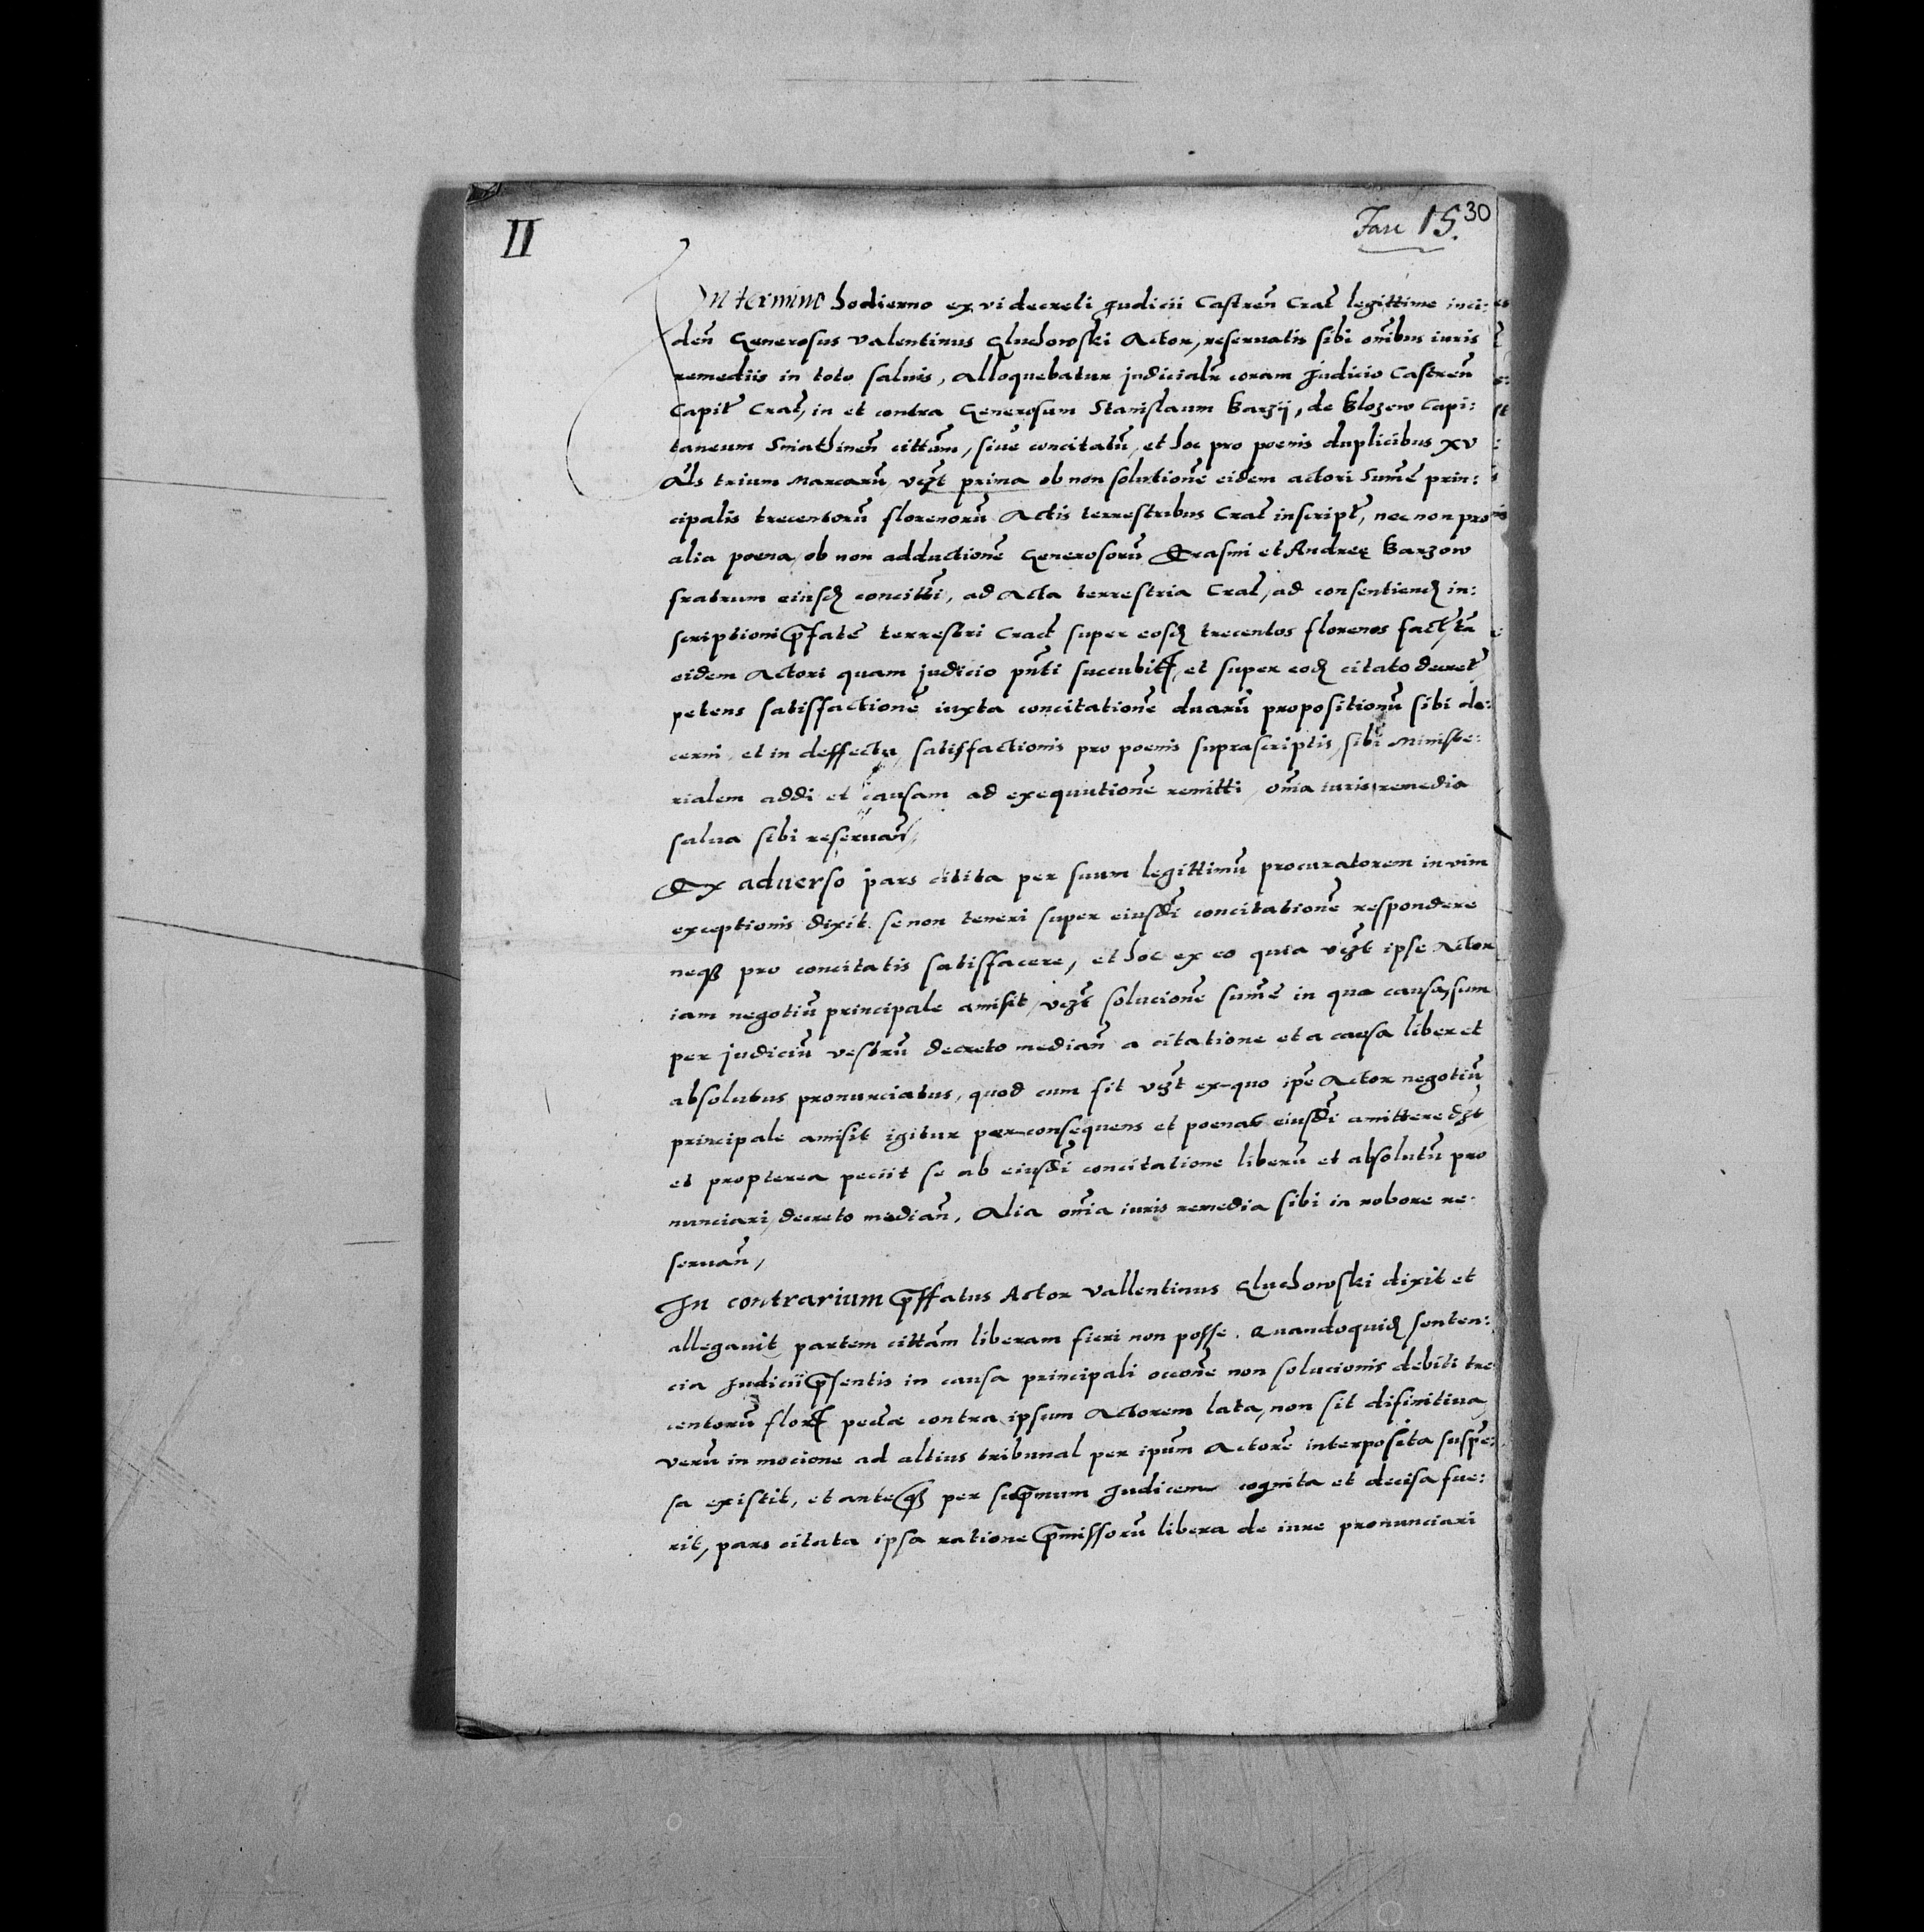 II
Fasc 15. 30
In termino hodierno ex vi decreti Judicii Castreñ Crac̃ legittime inci:
deñ Generosus Valentinus Gluchowski Actor, reservatis sibi om̃ibus iuris
remediis in toto salvis, alloquebatur judicialr̃ coram Judicio Castreñ
Capit̃ Crac̃, in et contra Generosum Stanislaum Barzij, de Blozew Capi:
taneum Sniathineñ cittum̃, siue concitatũ, et hoc pro poenis duplicibus xv
als trium Marcarũ, vizt̃ prima ob non solutionẽ eidem actori Sum̃e prin:
cipalis trecentorũ florenorũ Actis terrestribus Crac̃ inscript̃, nec non pro
alia poena, ob non adductionẽ Generosorũ Erasmi et Andreę Barzow
fratrum eiusd̃ concitti, ad Acta terrestria Crac̃, ad consentiend̃ in:
scriptioni p̃fatẽ terrestri Crac̃ super eosd̃ trecentos florenos fact̃, tã
eidem Actori quam judicio pñti succubit, et super eod̃ citato decret̃
petens satisffactionẽ iuxta concitationẽ duarũ propositionũ sibi de:
cerni, et in deffectu, satisffactionis pro poenis suprascriptis, sibi Ministe:
rialem addi et causam ad exequutionẽ remitti, om̃ia iuris remedia
salva sibi reservañ,
Ex adverso pars citita per suum legittimũ procuratorem in vim
exceptionis dixit se non teneri super eiusdĩ concitationẽ respondere
neq3 pro concitatis satisffacere, et hoc ex eo quia vizt̃ ipse Actor
iam negotiũ principale amisit, vizt̃ solucionẽ sum̃e in qua causa, sum
per judiciũ vestrũ decreto mediañ a citatione et a causa liber et
absolutus pronunciatus, quod cum sit vizt̃ ex-quo ip̃e Actor negotiũ
principale amisit igitur per consequens et poenas eiusdĩ amittere
et propterea peciit se ab eiusdĩ concitatione liberũ et absolutũ pro
nunciari, decreto mediañ, Alia om̃ia iuris remedia sibi in robore re:
servañ,
In contrarium p̃ffatus Actor Vallentinus Gluchowski dixit et
allegavit partem cittam̃ liberam fieri non posse. Quandoquid̃ senten:
cia Judicii p̃sentis in causa principali occonẽ non solucionis debiti tre
centorũ flor pecuniae contra ipsum Actorem lata, non sit difinitiva,
verũ in mocione ad altius tribunal per ipũm Actorẽ interposita suspẽ:
sa existit, et anteq3 per sup̃mum Judicem cognita et decisa fue:
rit, pars citata ipsa ratione p̃missorũ libera de iure pronunciari